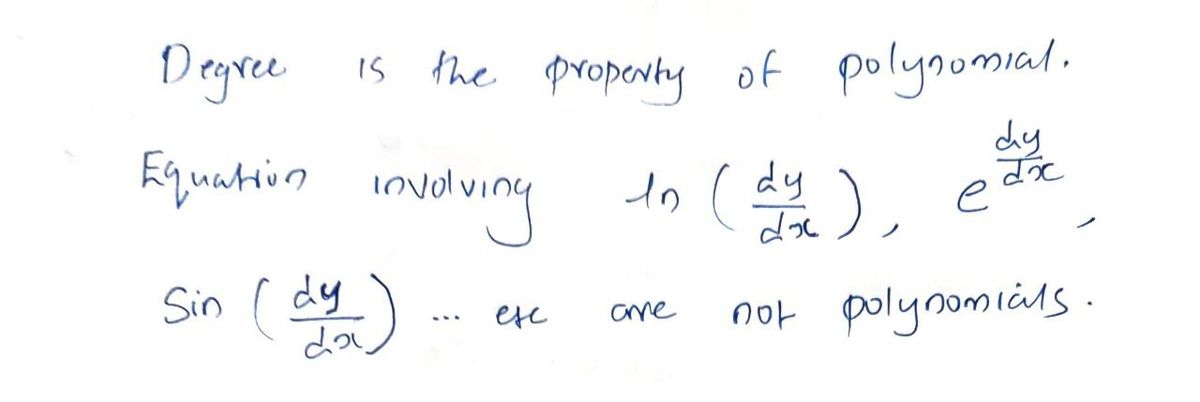 Degree is the property of polynomial.
Equation involving ln (dy/dx), e^(dy/dx),
Sin (dy/dx) ... etc are not polynomials.